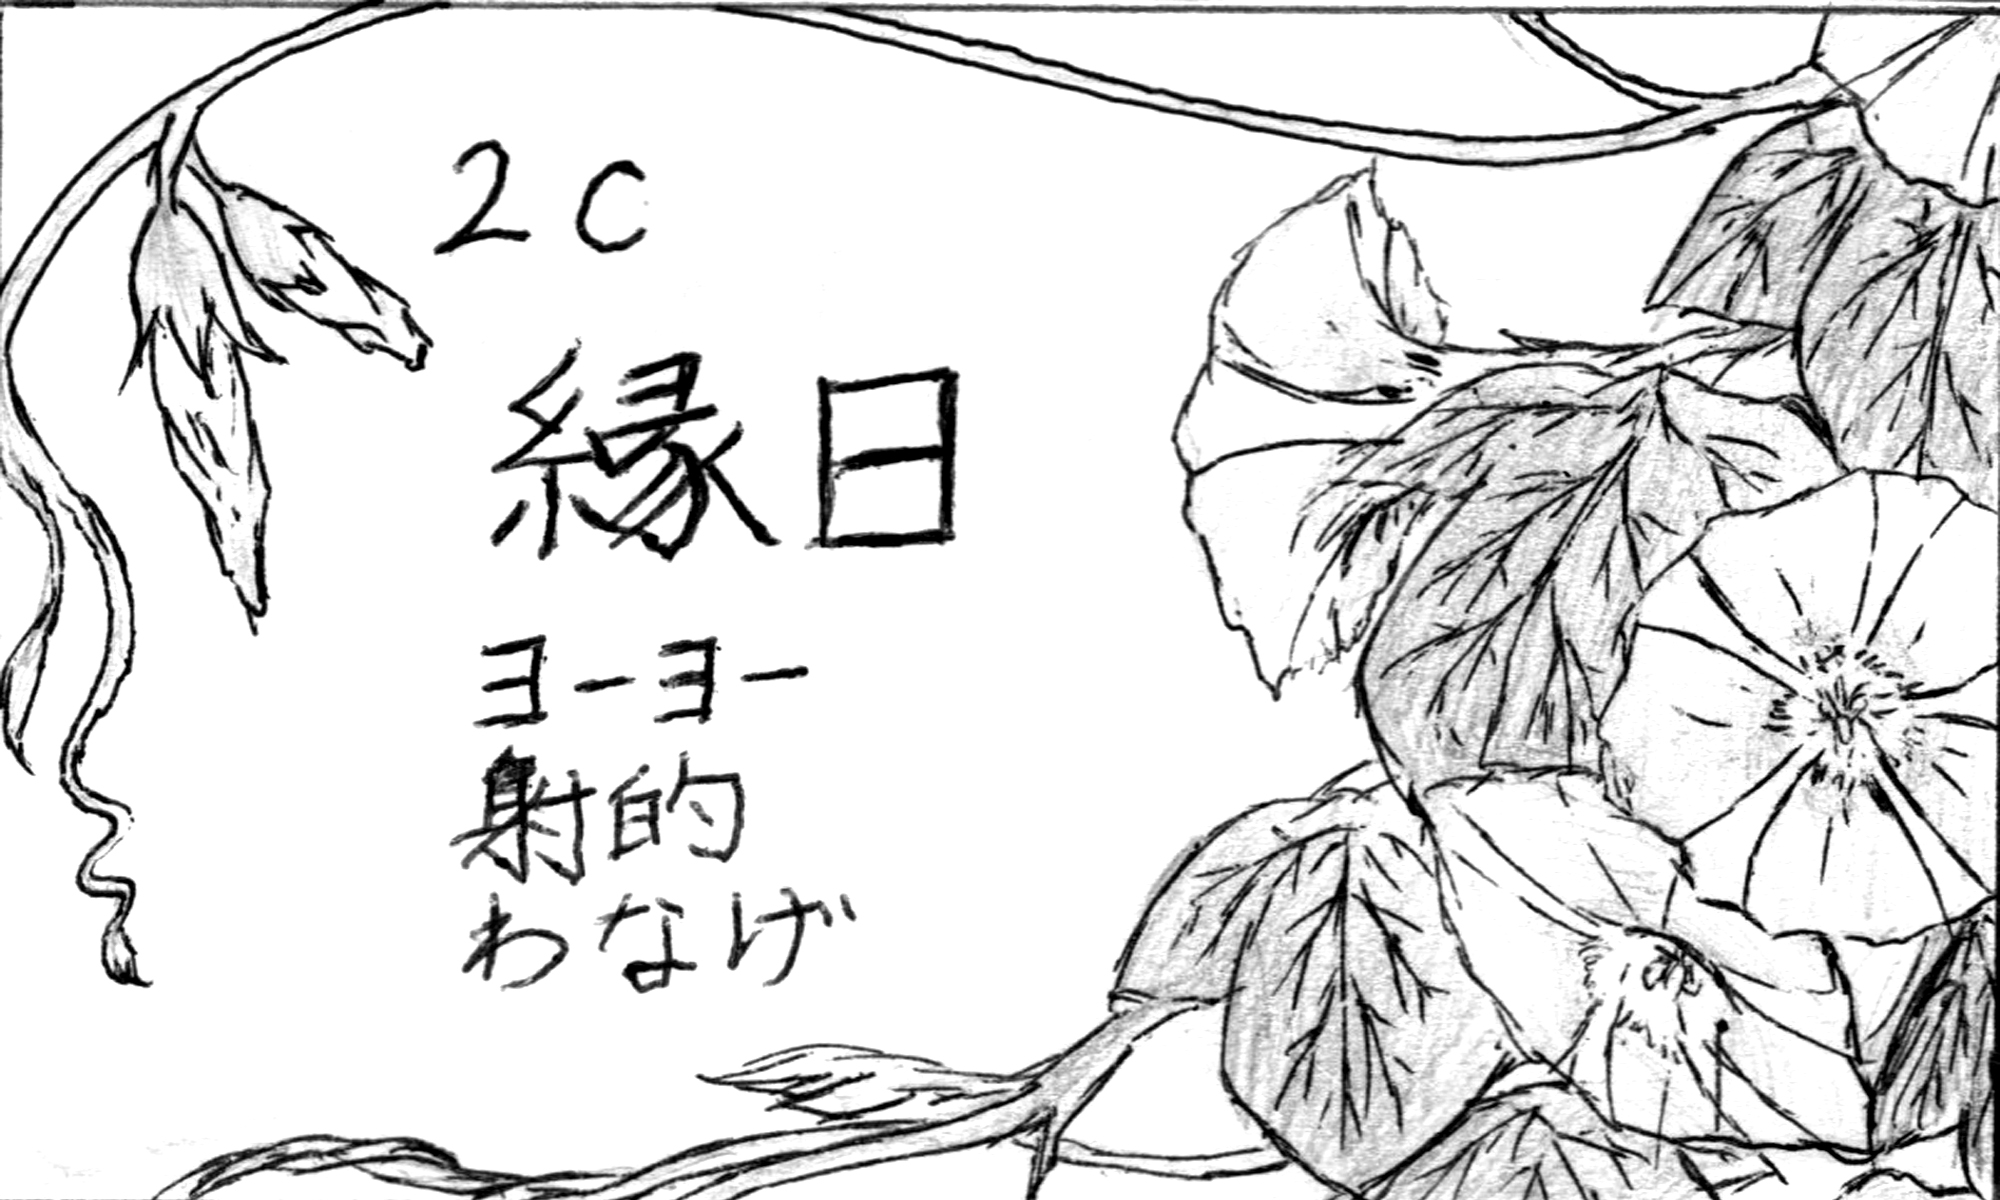 2C
縁日
ヨーヨー
射的
わなげ